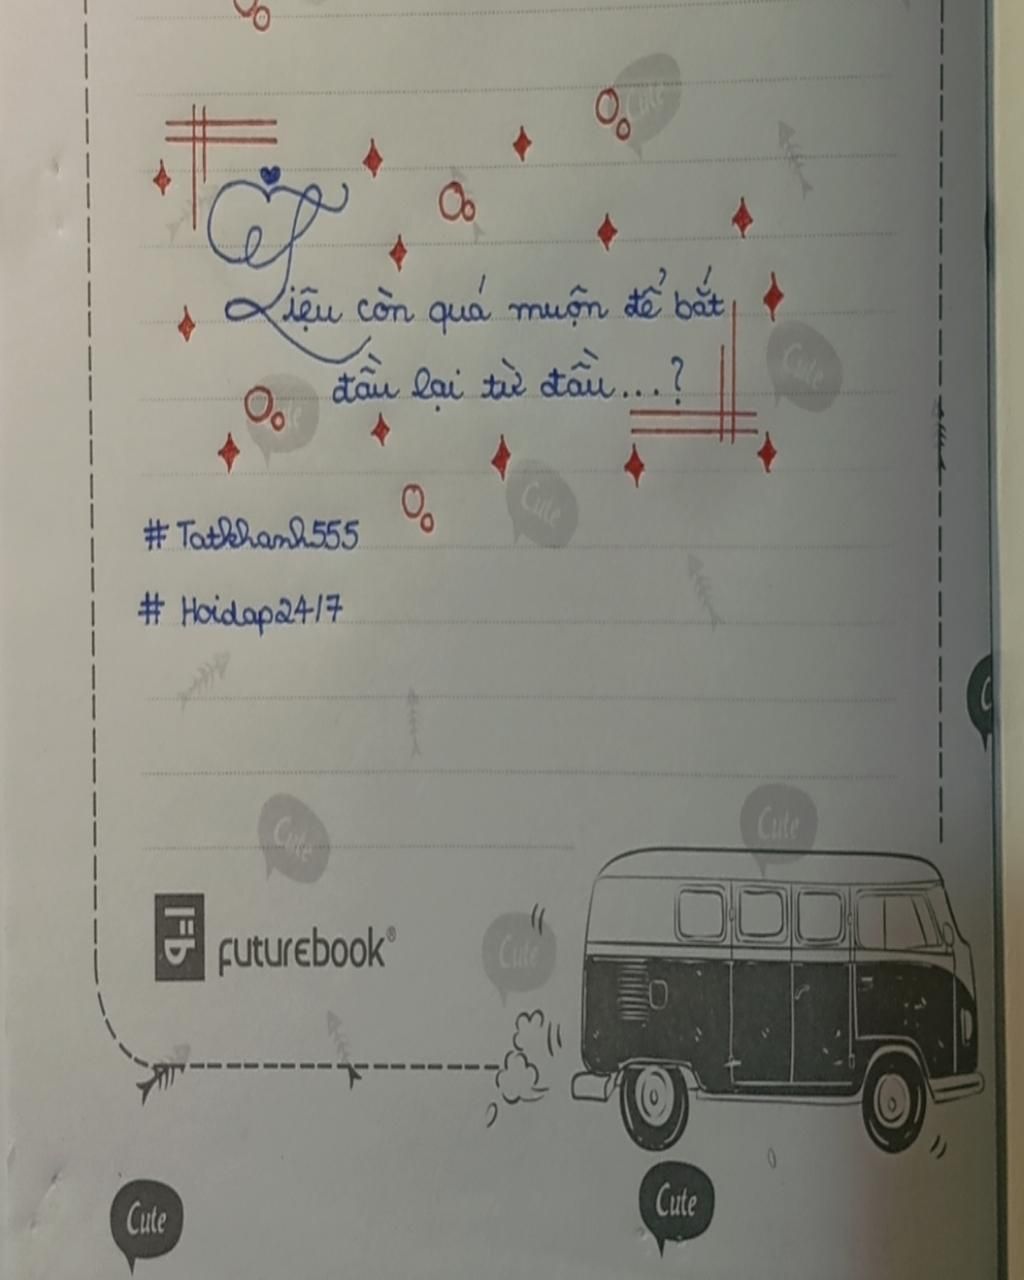 Cute
Liệu còn quá muộn để bắt
Cute
đầu lại từ đầu...?
Cute
Cute
# Tatkhanh555
# Hoidap24/7
Cute
Cute
futurebook®
Cute
Cute
Cute